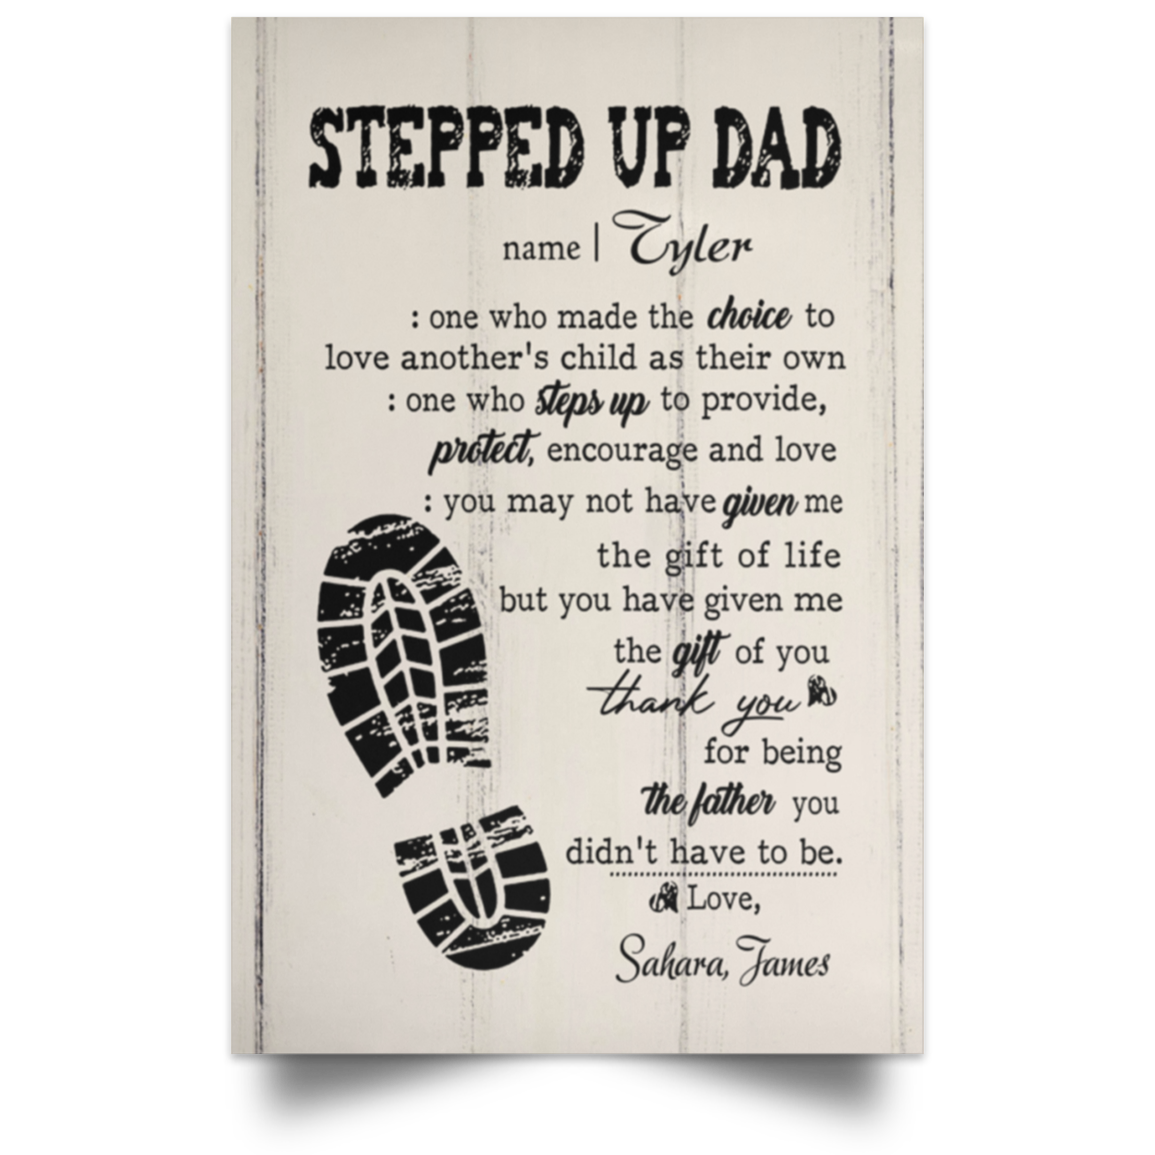 STEPPED UP DAD
name | Tyler
: one who made the choice to
love another's child as their own
: one who steps up to provide,
protect, encourage and love
: you may not have given me
the gift of life
but you have given me
the gift of you
thank you
for being
the father you
didn't have to be.
Love,
Sahara, James